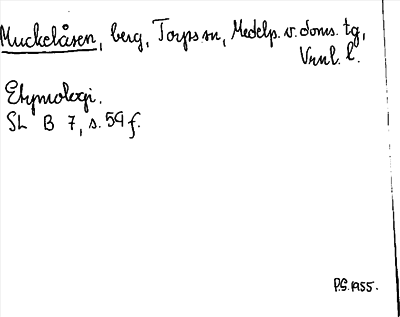 Muckelåsen, berg, Torps sn, Medelp. v. doms. tg,
Vrnl. l.
Etymologi.
SL B 7, s. 59 f.
P.S. 1955.